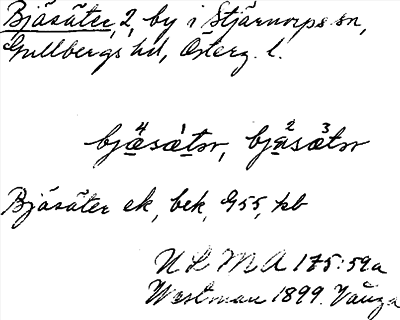 Bjäsäter, 2, by i Stjärnorps sn,
Gullbergs hd, Österg. l.
bjæ⁴sæ¹tər, bjæ²sæ³tər
Bjäsäter ek, bek, G55, kb
ULMA 175:59a
Westman 1899. Vånga